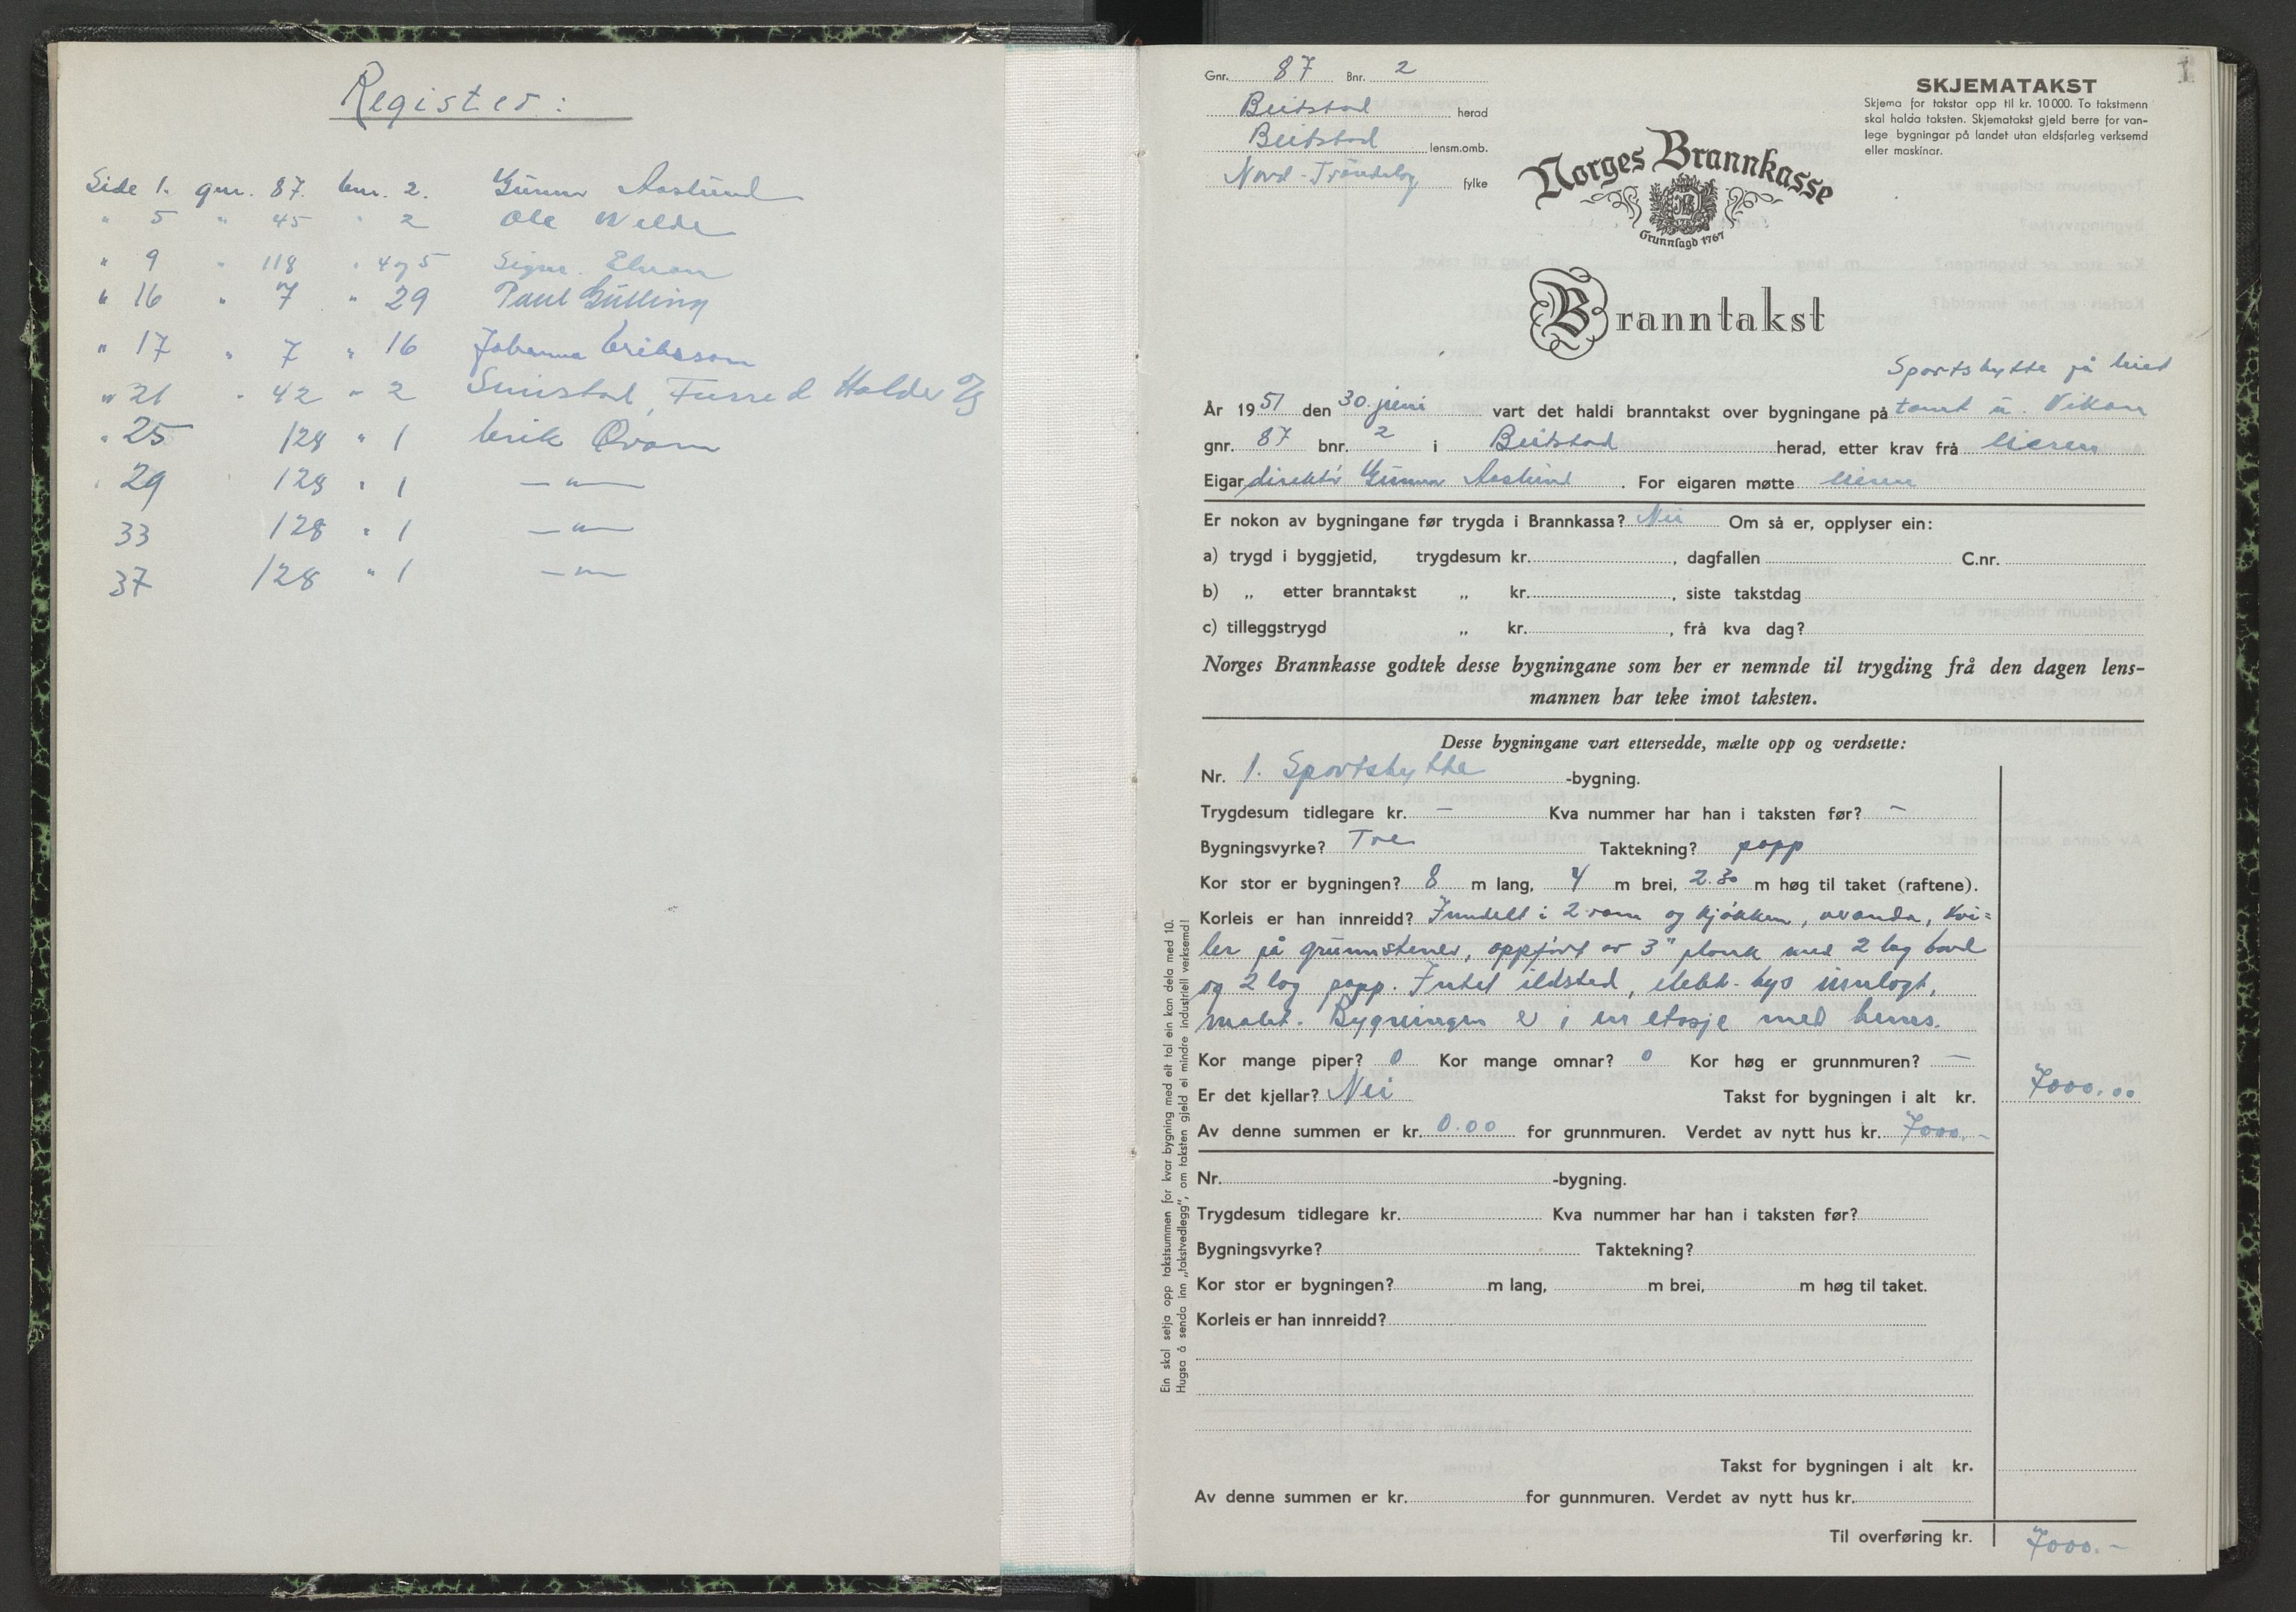 Register:
Side 1. gnr. 87. bnr. 2. Gunnar Aaslund
" 5 " 45 " 2 Ole Welde
" 9 " 118 " 4 og 5 Sigur.
" 16 " 7 " 29 Paul Gulling
" 17 " 7 " 16 Johanna Eriksson
" 21 " 42 " 2
" 25 128 " 1 Erik Qvam
29 128 " 1 — " —
33 128 " 1 — " —
37 128 " 1 — " —
1
Gnr. 87 Bnr. 2
Beitstad herad
Beitstad lensm.omb.
Nord-Trøndelag fylke
SKJEMATAKST
Skjema for takstar opp til kr. 10 000. To takstmenn
skal halda taksten. Skjematakst gjeld berre for van-
lege bygningar på landet utan eldsfarleg verksemd
eller maskinar.
Norges Brannkasse
Grunnlagd 1767
Branntakst
Sportshytte på leiet
År 1951 den 30. juni vart det haldi branntakst over bygningane på tomt u. Vikan
gnr. 87 bnr. 2 i Beitstad herad, etter krav frå eieren
Eigar direktør Gunnar Aaslund. For eigaren møtte eieren
Er nokon av bygningane før trygda i Brannkassa? Nei Om så er, opplyser ein:
a) trygd i byggjetid, trygdesum kr. , dagfallen C.nr.
b) „ etter branntakst „ kr. , siste takstdag
c) tilleggstrygd „ kr. , frå kva dag?
Norges Brannkasse godtek desse bygningane som her er nemnde til trygding frå den dagen lens-
mannen har teke imot taksten.
Desse bygningane vart ettersedde, mælte opp og verdsette:
Nr. 1. Sportshytte -bygning.
Trygdesum tidlegare kr. — Kva nummer har han i taksten før? —
Bygningsvyrke? Tre Taktekning? papp
Kor stor er bygningen? 8 m lang, 4 m brei, 2.30 m høg til taket (raftene).
Korleis er han innreidd? Inndelt i 2 rom og kjøkken, veranda, hvi=
ler på grunnstener, oppført av 3" plank med 2 lag bord
og 2 lag papp. Intet ildsted, elekt. lys innlagt,
malt. Bygningen er i en etasje med hems.
Kor mange piper? 0 Kor mange omnar? 0 Kor høg er grunnmuren? —
Er det kjellar? Nei Takst for bygningen i alt kr. 7000.00
Av denne summen er kr. 0.00 for grunnmuren. Verdet av nytt hus kr. 7000.-
Nr. -bygning.
Trygdesum tidlegare kr. Kva nummer har han i taksten før?
Bygningsvyrke? Taktekning?
Kor stor er bygningen? m lang, m brei, m høg til taket.
Korleis er han innreidd?
Takst for bygningen i alt kr.
Av denne summen er kr. for gunnmuren. Verdet av nytt hus kr.
Til overføring kr. 7000.-
Ein skal setja opp takstsummen for kvar bygning med eit tal ein kan dela med 10.
Hugsa å senda inn „takstvedlegg", om taksten gjeld ei mindre industriell verksemd!